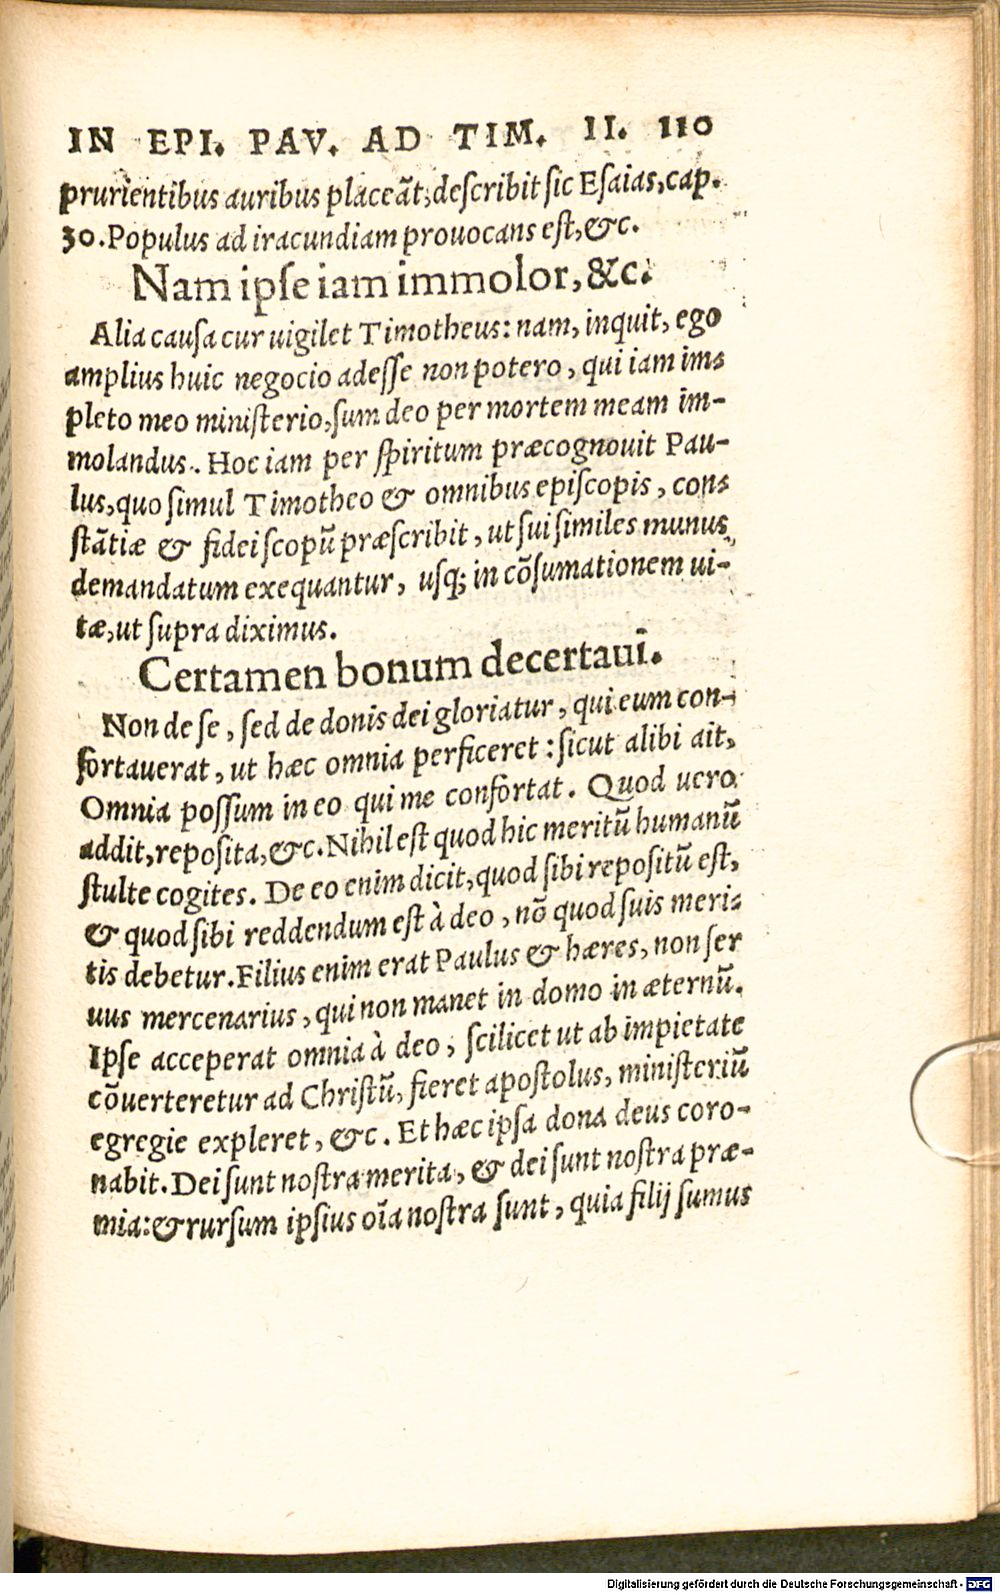 IN EPI. PAV. AD TIM. II. 110
prurientibus auribus placeāt, describit sic Esaias, cap.
30. Populus ad iracundiam prouocans est, &c.
Nam ipse iam immolor, &c.
Alia causa cur uigilet Timotheus: nam, inquit, ego
amplius huic negocio adesse non potero, qui iam im-
pleto meo ministerio, sum deo per mortem meam im-
molandus. Hoc iam per spiritum præcognouit Pau-
lus, quo simul Timotheo & omnibus episcopis, con-
stātiæ & fidei scopū præscribit, ut sui similes munus
demandatum exequantur, usq; in cōsumationem ui-
tæ, ut supra diximus.
Certamen bonum decertaui.
Non de se, sed de donis dei gloriatur, qui eum con-
fortauerat, ut hæc omnia perficeret: sicut alibi ait,
Omnia possum in eo qui me confortat. Quod uero
addit, reposita, &c. Nihil est quod hic meritū humanū
stulte cogites. De eo enim dicit, quod sibi repositū est,
& quod sibi reddendum est à deo, nō quod suis meri-
tis debetur. Filius enim erat Paulus & hæres, non ser
uus mercenarius, qui non manet in domo in æternū.
Ipse acceperat omnia à deo, scilicet ut ab impietate
cōuerteretur ad Christū, fieret apostolus, ministeriū
egregie expleret, &c. Et hæc ipsa dona deus coro-
nabit. Dei sunt nostra merita, & dei sunt nostra præ-
mia: & rursum ipsius oīa nostra sunt, quia filij sumus
Digitalisierung gefördert durch die Deutsche Forschungsgemeinschaft - DFG